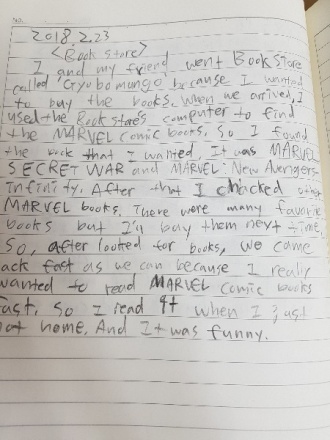 2018.2.23
<Book store>
I and my friend went Book store
called "Gyobomungo", because I wanted
to buy the books. When we arrived, I
used the Bookstore's computer to find
the MARVEL comic books. So I found
the book that I wanted, It was MARVEL
SECRET WAR and MARVEL: New Avengers-
Infinity. After that I chacked other
MARVEL books. There were many favorite
books but I'll buy them next time.
So, after looked for books, we came
ack fast as we can because I really
wanted to read MARVEL comic books
fast. So I read it when I
at home. And It was funny.